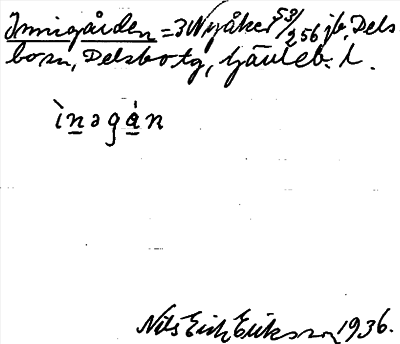 Innigården = 3 Nyåker 53/256 jb, Dels
bosn, Delsbo tg, Gävleb. l.
ìnəgȧn
Nils Erik Eriksson 1936.